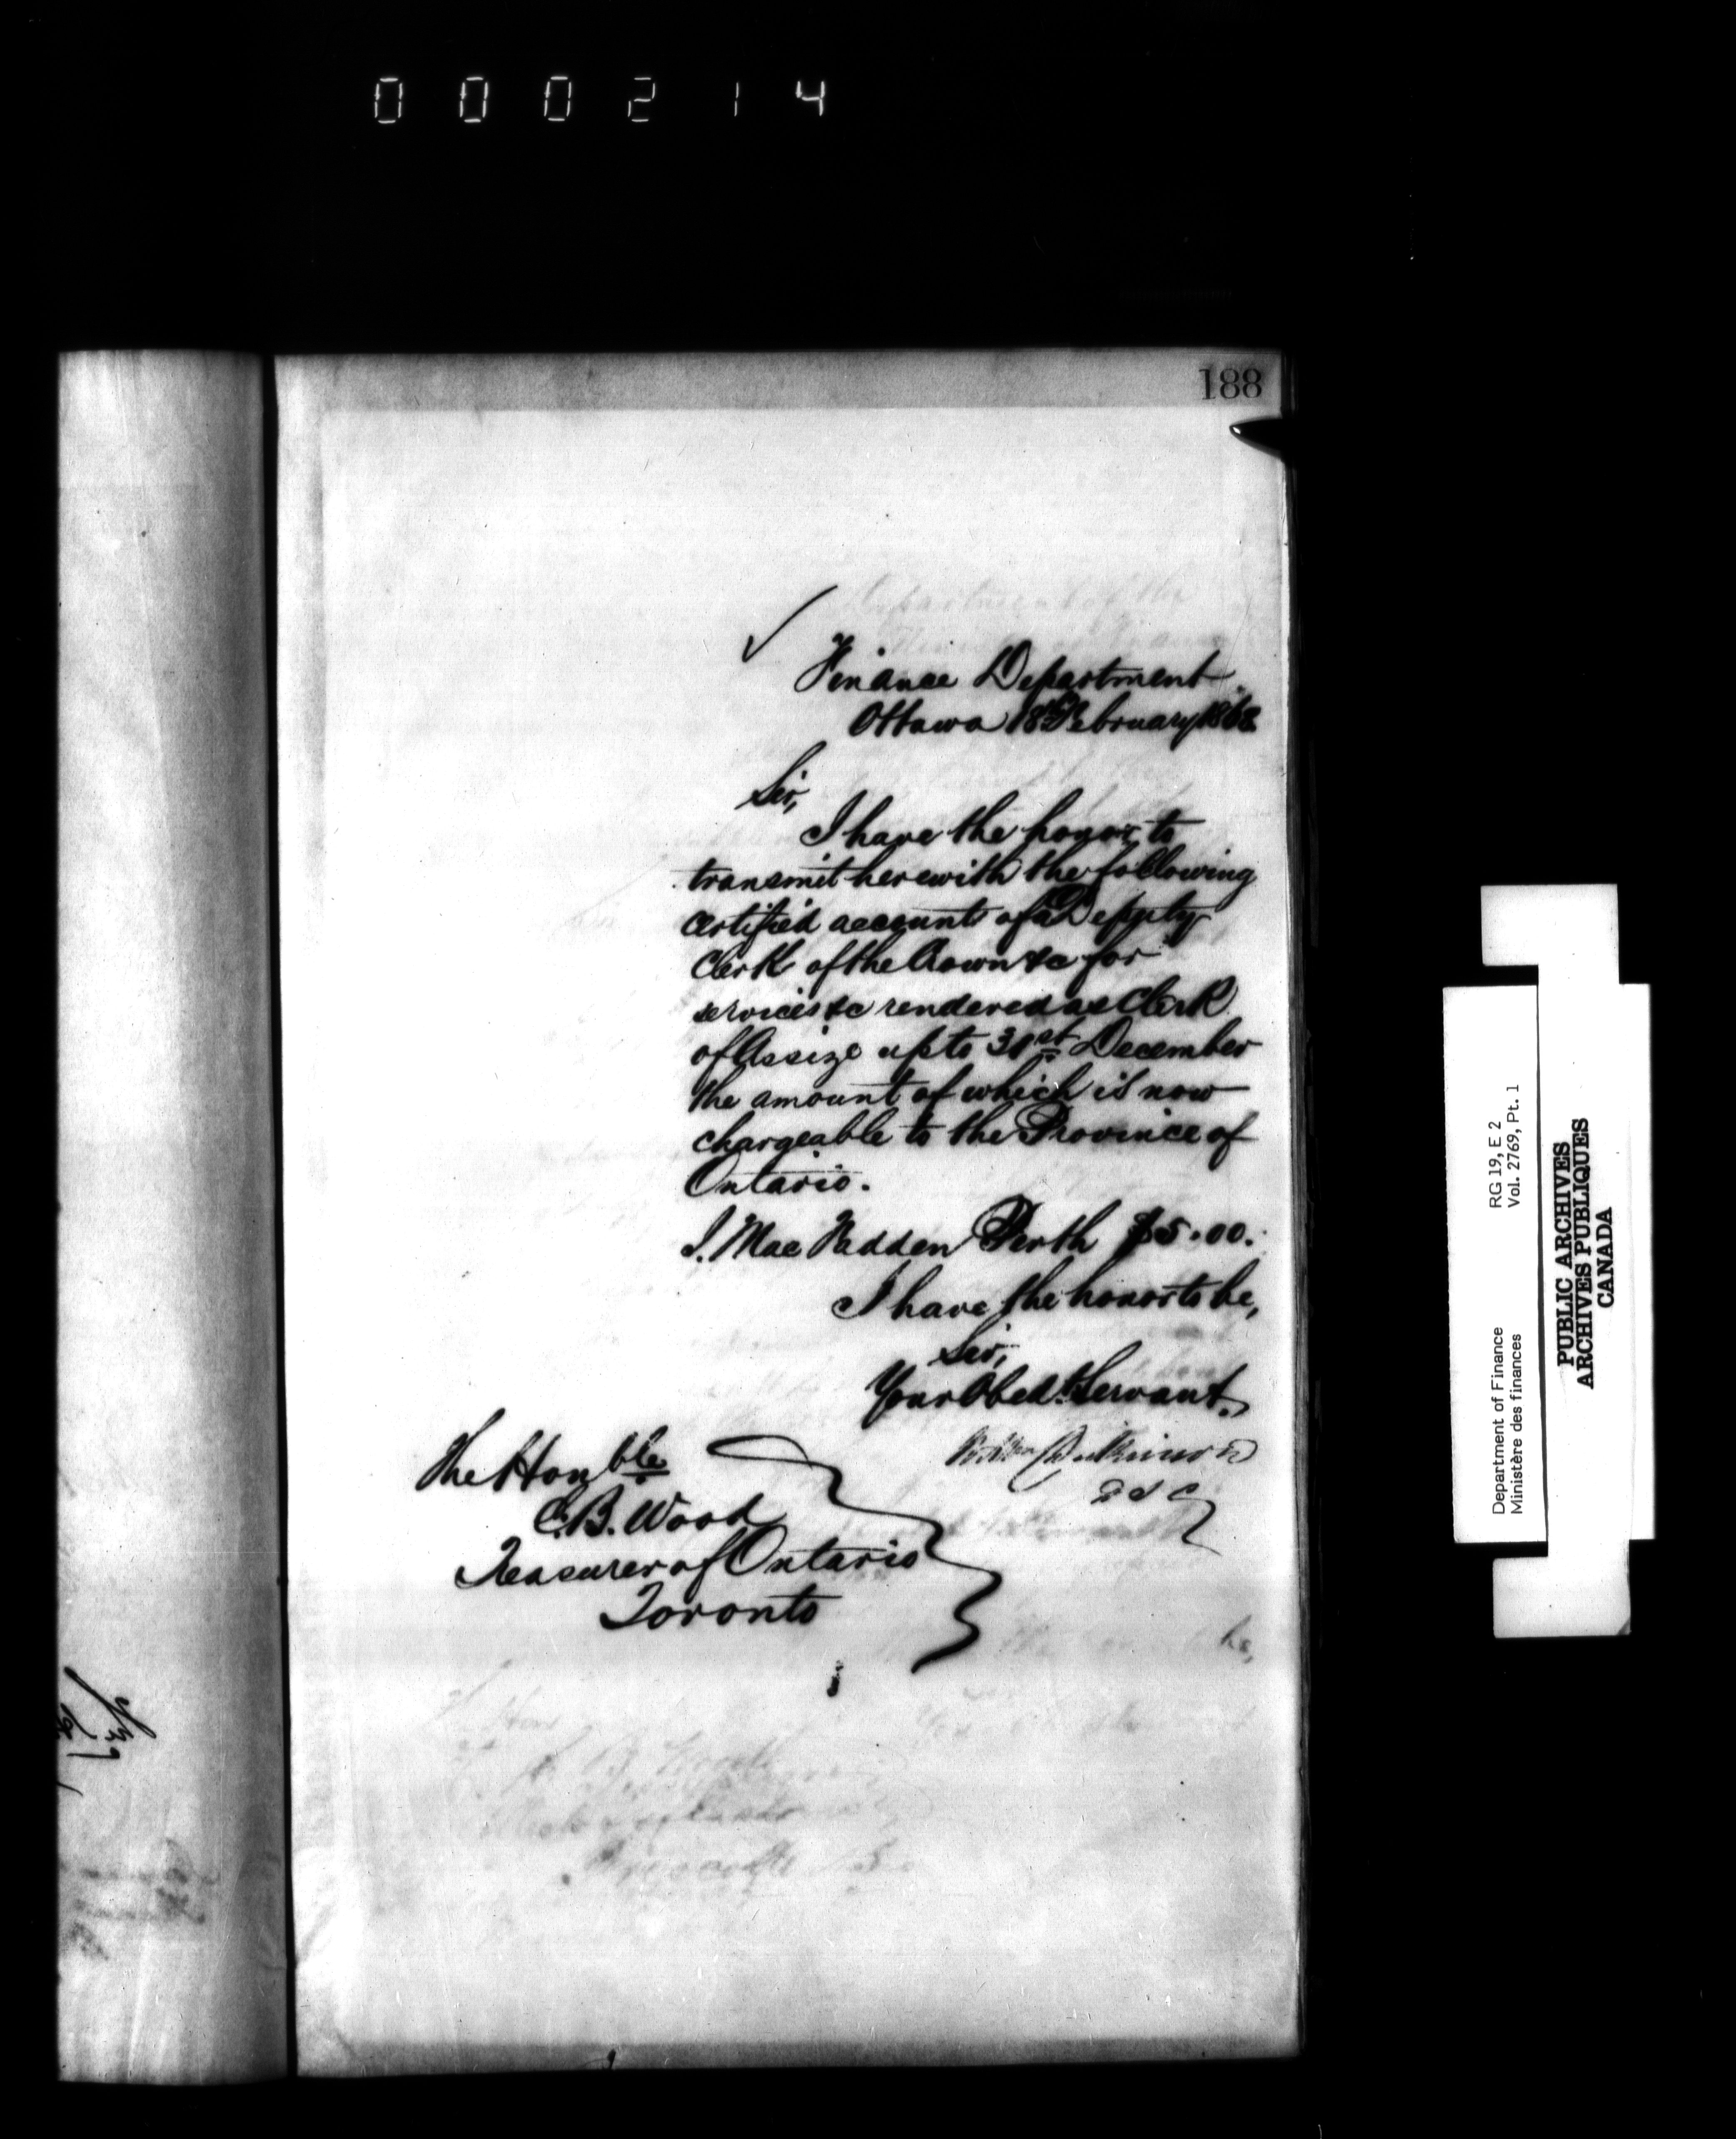 000214
188
Finance Department
Ottawa 18th February 1868
Sir,
I have the honor to
transmit herewith the following
certified account of a Deputy
Clerk of the Crown &c for
services &c rendered as Clerk
of Assize up to 31st December
the amount of which is now
chargeable to the Province of
Ontario.
J. MacFadden Perth $5.00.
I have the honor to be,
Sir,
Your Obed. Servant.
The Honble
E.B. Wood
Treasurer of Ontario
Toronto
RG 19, E 2
Vol. 2769, Pt. 1
Department of Finance
Ministère des finances
PUBLIC ARCHIVES
ARCHIVES PUBLIQUES
CANADA